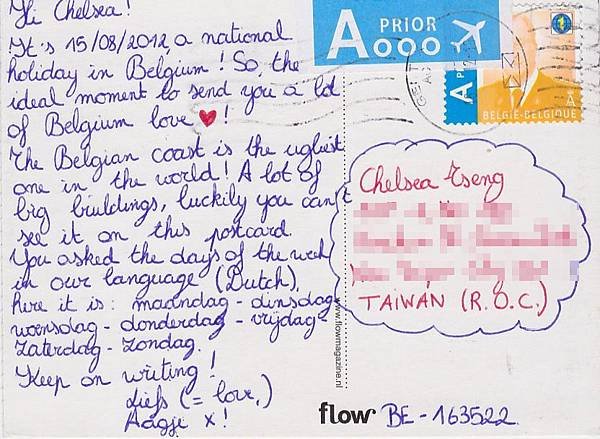 Hi Chelsea!
It's 15/08/2012, a national
holiday in Belgium! So, the
ideal moment to send you a lot
of Belgium love ♥!
The Belgian coast is the ugliest
one in the world! A lot of
big buildings, luckily you can't
see it on this postcard.
You asked the days of the week
in our language (Dutch),
here it is: maandag - dinsdag
woensdag - donderdag - vrijdag -
zaterdag - zondag.
Keep on writing!
Liefs (= love,)
Aagje x!
A PRIOR
A PRIOR
1
A
BELGIE-BELGIQUE
Chelsea Tseng
TAIWAN (R.O.C.)
www.flowmagazine.nl
flow BE - 163522